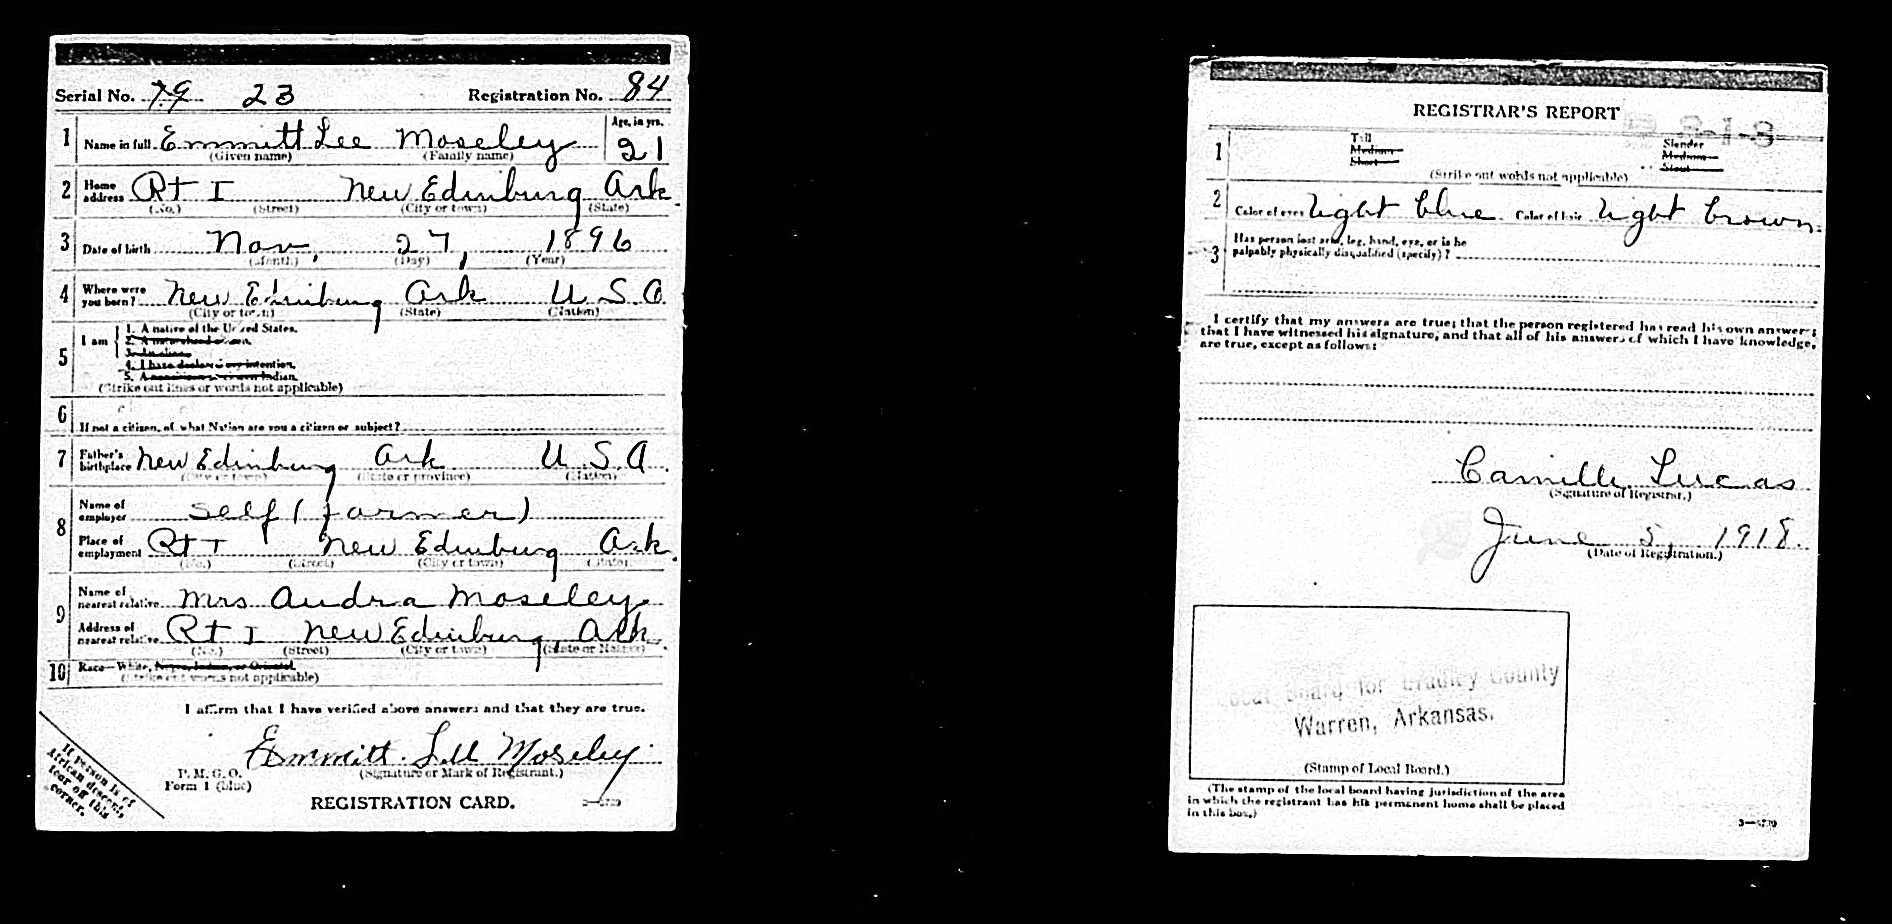 Serial No. 79 23 Registration No. 84
1 Name in full Emmitt Lee Moseley Age, in yrs. 21
(Given name) (Family name)
2 Home address Rt I New Edinburg Ark.
(No.) (Street) (City or town) (State)
3 Date of birth Nov, 27, 1896
(Month) (Day) (Year)
4 Where were you born? New Edinburg Ark U S A
(City or town) (State) (Nation)
5 I am
1. A native of the United States.
2. A naturalized citizen.
3. An alien.
4. I have declared my intention.
5. A noncitizen or citizen Indian.
(Strike out lines or words not applicable)
6
If not a citizen, of what Nation are you a citizen or subject?
7 Father's birthplace New Edinburg Ark U S A.
(City or town) (State or province) (Nation)
8 Name of employer Self (farmer)
Place of employment Rt I New Edinburg Ark.
(No.) (Street) (City or town) (State)
9 Name of nearest relative Mrs Audra Moseley
Address of nearest relative Rt I New Edinburg, Ark.
(No.) (Street) (City or town) (State or Nation)
10 Race—White, Negro, Indian, or Oriental.
(Strike out words not applicable)
I affirm that I have verified above answers and that they are true.
Emmitt Lee Moseley
(Signature or Mark of Registrant.)
P. M. G. O.
Form 1 (blue)
REGISTRATION CARD.
If person is of
African descent,
tear off this
corner.
REGISTRAR'S REPORT
1 Tall Slender
Medium Medium
Short Stout
(Strike out words not applicable)
2 Color of eyes light blue Color of hair light brown.
3 Has person lost arm, leg, hand, eye, or is he
palpably physically disqualified (specify)?
I certify that my answers are true; that the person registered has read his own answers;
that I have witnessed his signature, and that all of his answers of which I have knowledge,
are true, except as follows:
Camille Lucas
(Signature of Registrar.)
June 5, 1918.
(Date of Registration.)
Local Board for Bradley County
Warren, Arkansas.
(Stamp of Local Board.)
(The stamp of the local board having jurisdiction of the area
in which the registrant has his permanent home shall be placed
in this box.)